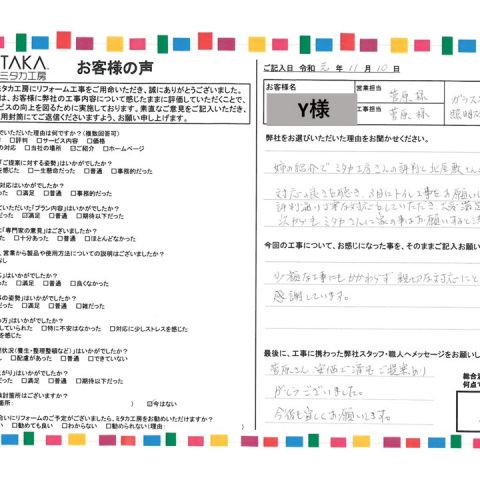 TAKA
ミタカ工房
お客様の声
ミタカ工房にリフォーム工事をご用命いただき、誠にありがとうございました。
は、お客様に弊社の工事内容について感じたままに評価していただくことで、
ビスの向上を図るために実施しております。率直なご意見をご記入いただき、
用封筒にてご返信くださいますよう、お願い申し上げます。
いただいた理由は何ですか?(複数回答可)
□評判 □サービス内容 □価格
の対応 □当社の場所 ☑ご紹介 □ホームページ
ご提案に対する姿勢」はいかがでしたか?
を感じた □一生懸命だった □普通 □事務的だった
対応はいかがでしたか?
った ☑満足 □普通 □事務的だった
ていただいた「プラン内容」はいかがでしたか?
った ☑満足 □普通 □期待以下だった
に「専門家の意見」はございましたか?
った □十分あった □普通 □ほとんどなかった
、営業から製品や使用方法についての説明はございましたか?
なし
」はいかがでしたか?
った □満足 □普通 □良くなかった
事の姿勢」はいかがでしたか?
った □満足 □普通 □雑だった
の方」はいかがでしたか?
していられた □特に不安はなかった □対応に少しストレスを感じた
を感じた
状況(養生・整理整頓など)」はいかがでしたか?
し □配慮があった □普通 □できていない
がり」はいかがでしたか?
った □満足 □普通 □期待以下だった
検討箇所はございますか?
箇所: ) ☑今はない
合いにリフォームのご予定がございましたら、ミタカ工房をお勧めいただけますか?
□勧めても良い □わからない □勧められない(理由:
ご記入日 令和 元 年 11 月 10 日
お客様名
Y様
営業担当 菅原 様
工事担当 菅原 様
ガラス
照明
弊社をお選びいただいた理由をお聞かせください。
姉の紹介で ミタカ工房さんの評判も
今回の工事について、お感じになった事を、そのままご記入お願い
少額な工事にもかかわらず 親切な対応にと
感謝しています。
最後に、工事に携わった弊社スタッフ・職人へメッセージをお願いし
菅原さん 安価で済む ご提案あり
がとうございました。
今後も宜しくお願いします。
総合
何点で